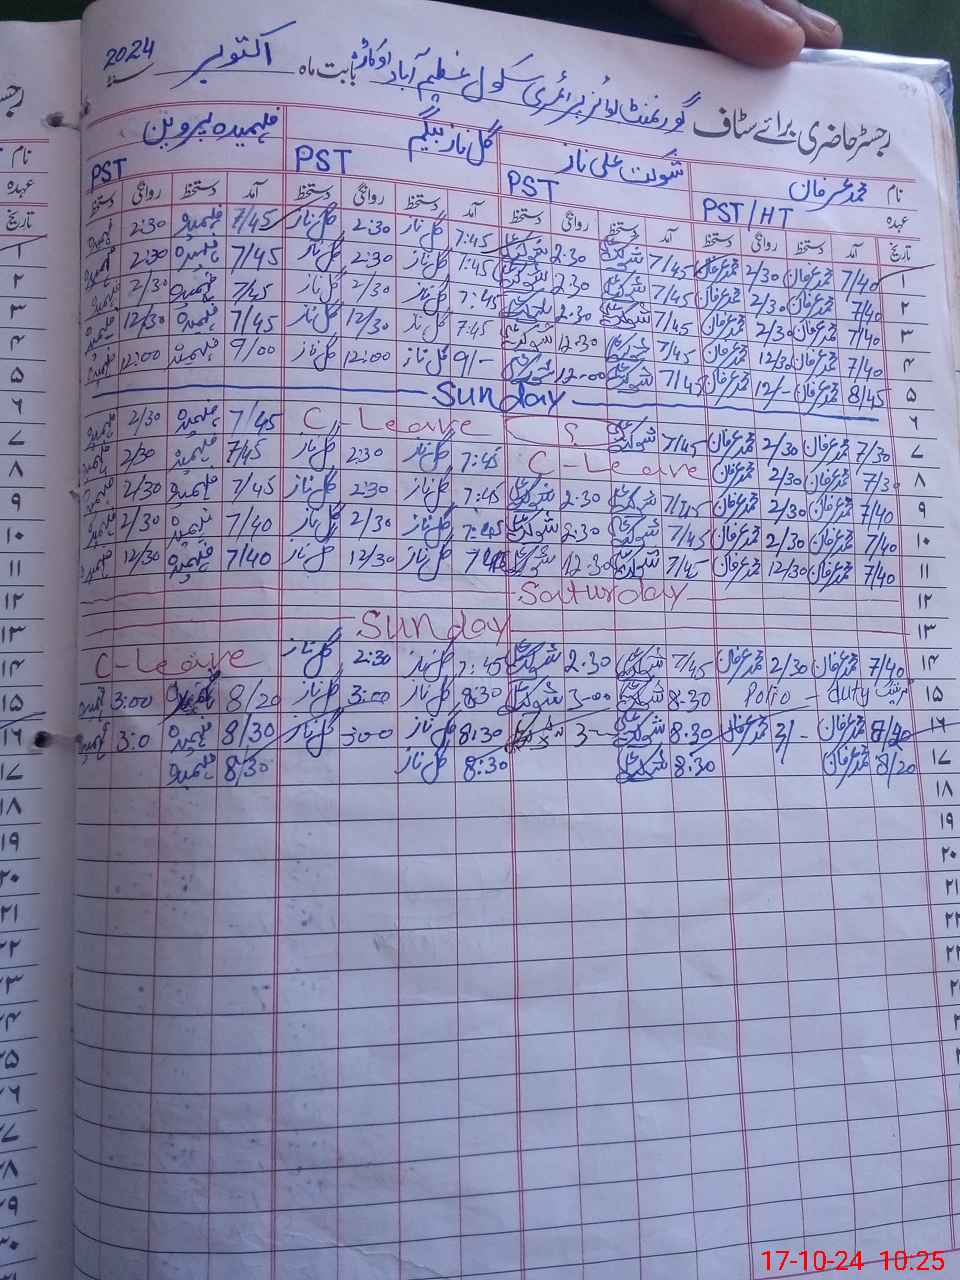 رجسٹر حاضری برائے سٹاف گورنمنٹ بوائز پرائمری سکول عظیم آباد اوکاڑہ بابت ماہ اکتوبر سنہ 2024
نام محمد عرفان شوکت علی ناز گل ناز بیگم فہمیدہ پروین
عہدہ PST/HT PST PST PST
تاریخ آمد دستخط روانگی دستخط آمد دستخط روانگی دستخط آمد دستخط روانگی دستخط آمد دستخط روانگی دستخط
۱ 7/40 محمد عرفان 2/30 محمد عرفان 7/45 شوکت علی 2:30 شوکت علی 7:45 گل ناز 2:30 گل ناز 7/45 فہمیدہ 2:30 فہمیدہ
۲ 7/40 محمد عرفان 2/30 محمد عرفان 7/45 شوکت علی 2:30 شوکت علی 7:45 گل ناز 2:30 گل ناز 7/45 فہمیدہ 2:30 فہمیدہ
۳ 7/40 محمد عرفان 2/30 محمد عرفان 7/45 شوکت علی 2:30 شوکت علی 7:45 گل ناز 2/30 گل ناز 7/45 فہمیدہ 2/30 فہمیدہ
۴ 7/40 محمد عرفان 12/30 محمد عرفان 7/45 شوکت علی 12.30 شوکت علی 7:45 گل ناز 12/30 گل ناز 7/45 فہمیدہ 12/30 فہمیدہ
۵ 8/45 محمد عرفان 12/- محمد عرفان 7/45 شوکت علی 12-00 شوکت علی 9/- گل ناز 12:00 گل ناز 9/00 فہمیدہ 12:00 فہمیدہ
۶ Sunday
۷ 7/30 محمد عرفان 2/30 محمد عرفان 7/45 شوکت علی ? C-Leave 7/45 فہمیدہ 2/30 فہمیدہ
۸ 7/30 محمد عرفان 2/30 محمد عرفان C-Leave 7:45 گل ناز 2:30 گل ناز 7/45 فہمیدہ 2/30 فہمیدہ
۹ 7/40 محمد عرفان 2/30 محمد عرفان 7/45 شوکت علی 2.30 شوکت علی 7:45 گل ناز 2:30 گل ناز 7/45 فہمیدہ 2/30 فہمیدہ
۱۰ 7/40 محمد عرفان 2/30 محمد عرفان 7/45 شوکت علی 2:30 شوکت علی 7:45 گل ناز 2/30 گل ناز 7/40 فہمیدہ 2/30 فہمیدہ
۱۱ 7/40 محمد عرفان 12/30 محمد عرفان 7/45 شوکت علی 12.30 شوکت علی گل ناز 12/30 گل ناز 7/40 فہمیدہ 12/30 فہمیدہ
۱۲ Saturday
۱۳ Sunday
۱۴ 7/40 محمد عرفان 2/30 محمد عرفان 7/45 شوکت علی 2.30 شوکت علی 7:45 گل ناز 2:30 گل ناز C-Leave
۱۵ Polio - duty 8.30 شوکت علی 3-00 شوکت علی 8:30 گل ناز 3:00 گل ناز 8/20 3:00 فہمیدہ
۱۶ 8/20 محمد عرفان 3/- محمد عرفان 8.30 شوکت علی 8:30 گل ناز 3:00 گل ناز 8/30 فہمیدہ 3:0 فہمیدہ
۱۷ 8/20 محمد عرفان 8.30 شوکت علی 8:30 گل ناز 8/30 فہمیدہ
۱۸
۱۹
۲۰
۲۱
۲۲
17-10-24 10:25